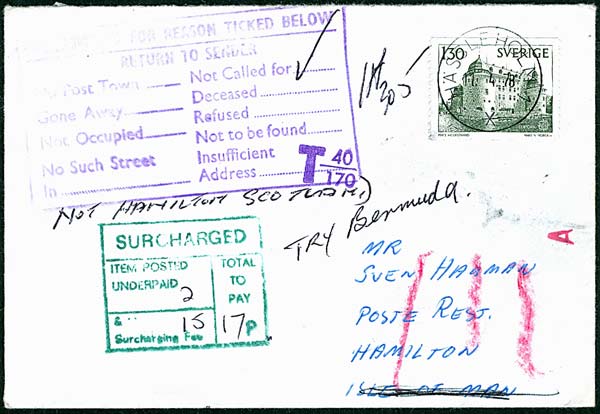 FOR REASON TICKED BELOW
RETURN TO SENDER
Post Town
Gone Away
Not Occupied
No Such Street
In
Not Called for
Deceased
Refused
Not to be found
Insufficient
Address
T 40/170
130 SVERIGE
HÄSSLEHOLM
NOT HAMILTON SCOTLAND
TRY Bermuda.
SURCHARGED
ITEM POSTED
UNDERPAID 2
& 15
Surcharging Fee
TOTAL
TO
PAY
17P
A
MR
SVEN HAGMAN
POSTE REST.
HAMILTON
ISLE OF MAN